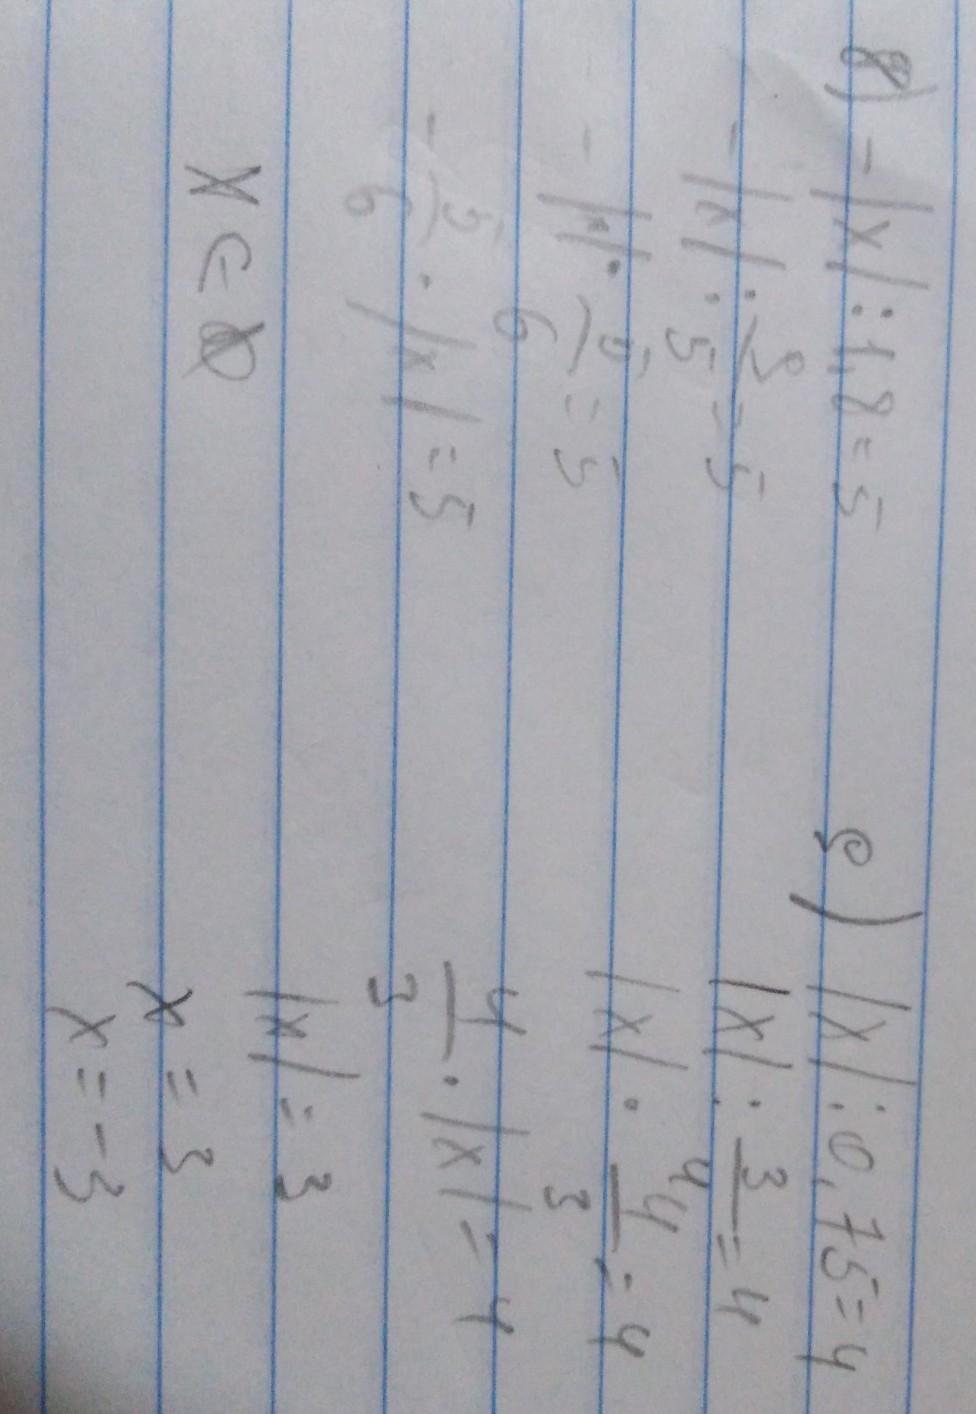 8) -|x|:1,8=5
-|x|:9/5=5
-|x|·5/6=5
-5/6·|x|=5
x∈Ø
9) |x|:0,75=4
|x|:3/4=4
|x|·4/3=4
4/3·|x|=4
|x|=3
x=3
x=-3